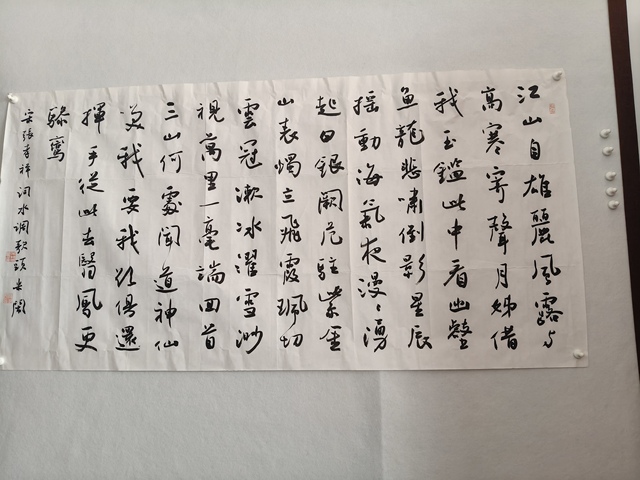 江山自雄麗風露与
高寒寄聲月姊借
我玉鑑此中看幽壑
魚龍悲嘯倒影星辰
摇動海氣夜漫〻湧
起白銀闕危駐紫金
山表燭立飛霞珮切
雲冠漱冰濯雪渺
視萬里一毫端回首
三山何處聞道神仙
笑我要我欲俱還
揮手從此去翳鳳更
驂鸞
宋張孝祥词水調歌頭